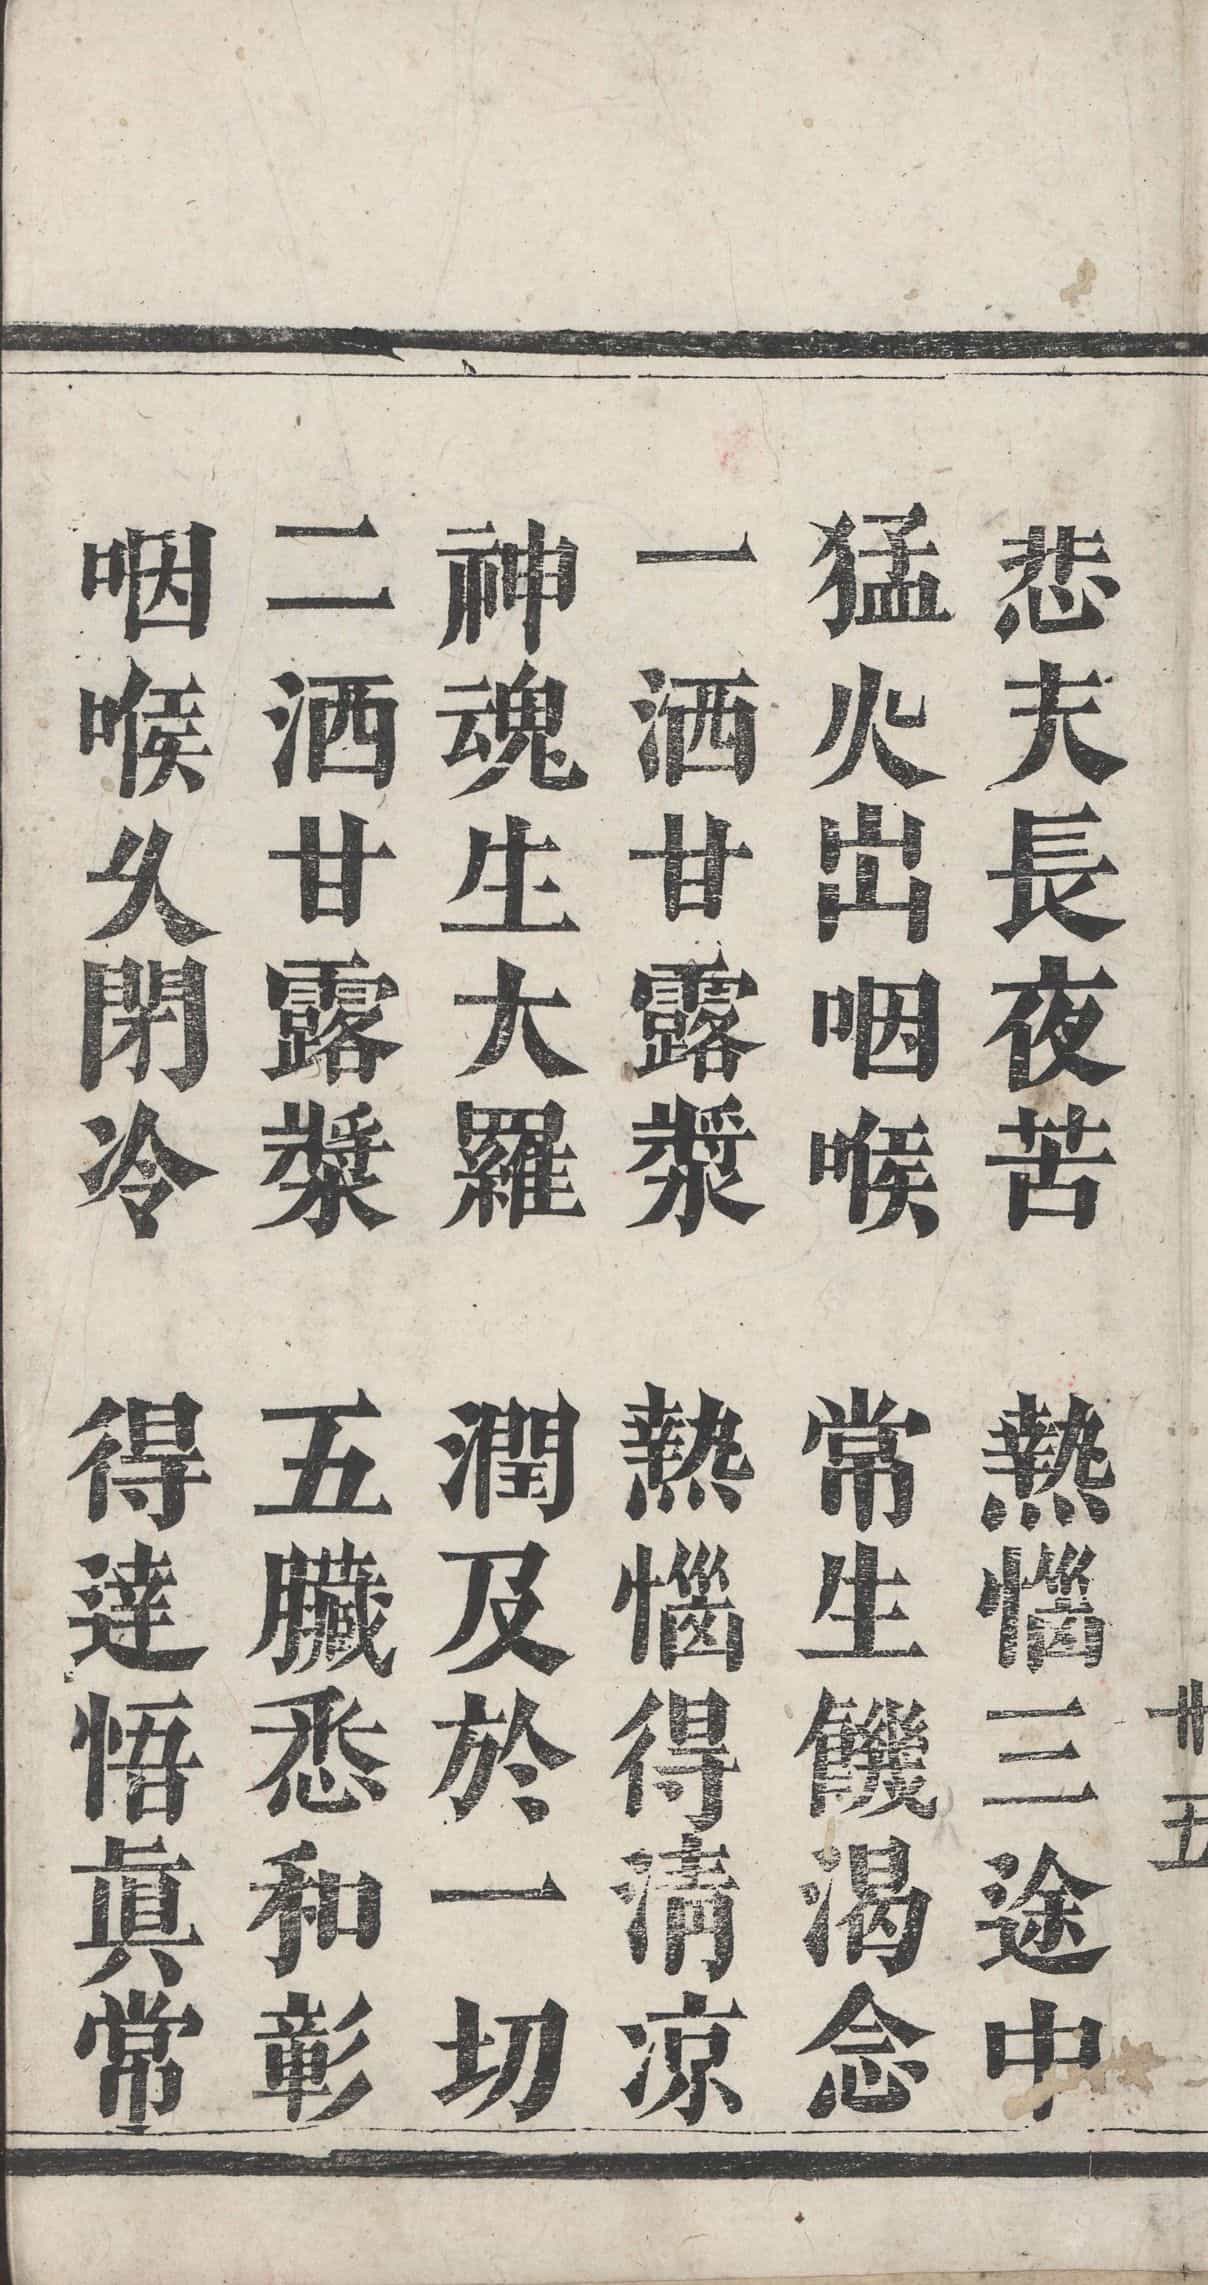 卅五
悲夫長夜苦　熱惱三途中
猛火出咽喉　常生饑渴念
一洒甘露漿　熱惱得清凉
神魂生大羅　潤及於一切
二洒甘露漿　五臟悉和彰
咽喉久閉冷　得達悟眞常